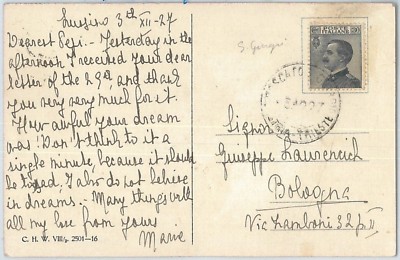 Lussino 3th XII-27
Dearest Pepi.- Yesterday in the
afternoon I received your dear
letter of the 29th, and thank
you very very much for it.
How awful your dream
was! Don't think to it a
single minute, because it should
be too sad. I also do not believe
in dreams.. Many things with
all my love from yours
Marie
C. H. W. VIII/2 2501-16
Signor
Giuseppe
Bologna
Via Zamboni 32 p II